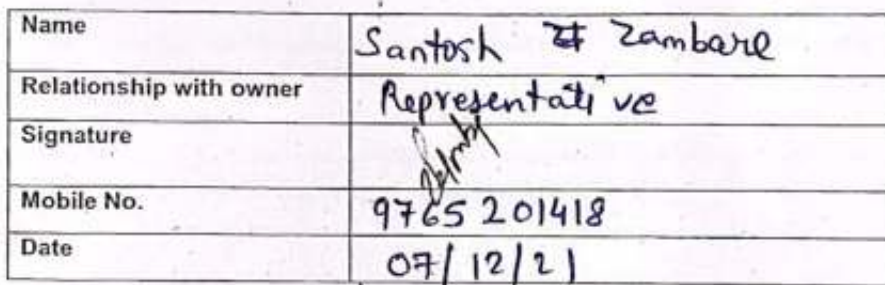 Name Santosh Zambare
Relationship with owner Representative
Signature
Mobile No. 9765201418
Date 07/12/21